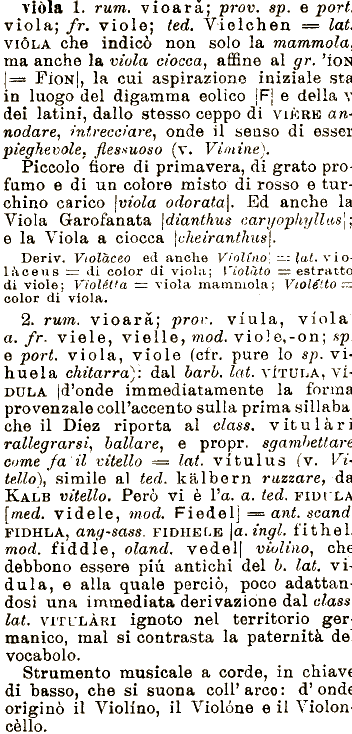 viòla 1. rum. vioară; prov. sp. e port.
viola; fr. viole; ted. Vielchen = lat.
VIÒLA che indicò non solo la mammola,
ma anche la viola ciocca, affine al gr. 'ÍON
[= FÍON], la cui aspirazione iniziale sta
in luogo del digamma eolico [F] e della v
dei latini, dallo stesso ceppo di VIÈRE an-
nodare, intrecciare, onde il senso di esser
pieghevole, flessuoso (v. Vimine).
Piccolo fiore di primavera, di grato pro-
fumo e di un colore misto di rosso e tur-
chino carico [viola odorata]. Ed anche la
Viola Garofanata [dianthus caryophyllus];
e la Viola a ciocca [cheiranthus].
Deriv. Violàceo ed anche Violíno = lat. vio-
làceus = di color di viola; Violàto = estratto
di viole; Violétta = viola mammola; Violétto =
color di viola.
2. rum. vioară; prov. víula, víola
a. fr. viele, vielle, mod. viole,-on; sp
e port. viola, viole (cfr. pure lo sp. vi-
huela chitarra): dal barb. lat. VÍTULA, VÍ-
DULA [d'onde immediatamente la forma
provenzale coll'accento sulla prima sillaba
che il Diez riporta al class. vitulàri
rallegrarsi, ballare, e propr. sgambettare
come fa il vitello = lat. vítulus (v. Vi-
tello), simile al ted. kälbern ruzzare, da
KALB vitello. Però vi è l'a. a. ted. FIDULA
[med. videle, mod. Fiedel] = ant. scand
FIDHLA, ang-sass. FIDHELE [a. ingl. fithel,
mod. fiddle, oland. vedel] violino, che
debbono essere piú antichi del b. lat. vi-
dula, e alla quale perciò, poco adattan-
dosi una immediata derivazione dal class
lat. VITULÀRI ignoto nel territorio ger-
manico, mal si contrasta la paternità del
vocabolo.
Strumento musicale a corde, in chiave
di basso, che si suona coll'arco: d'onde
originò il Violíno, il Violóne e il Violon-
cèllo.